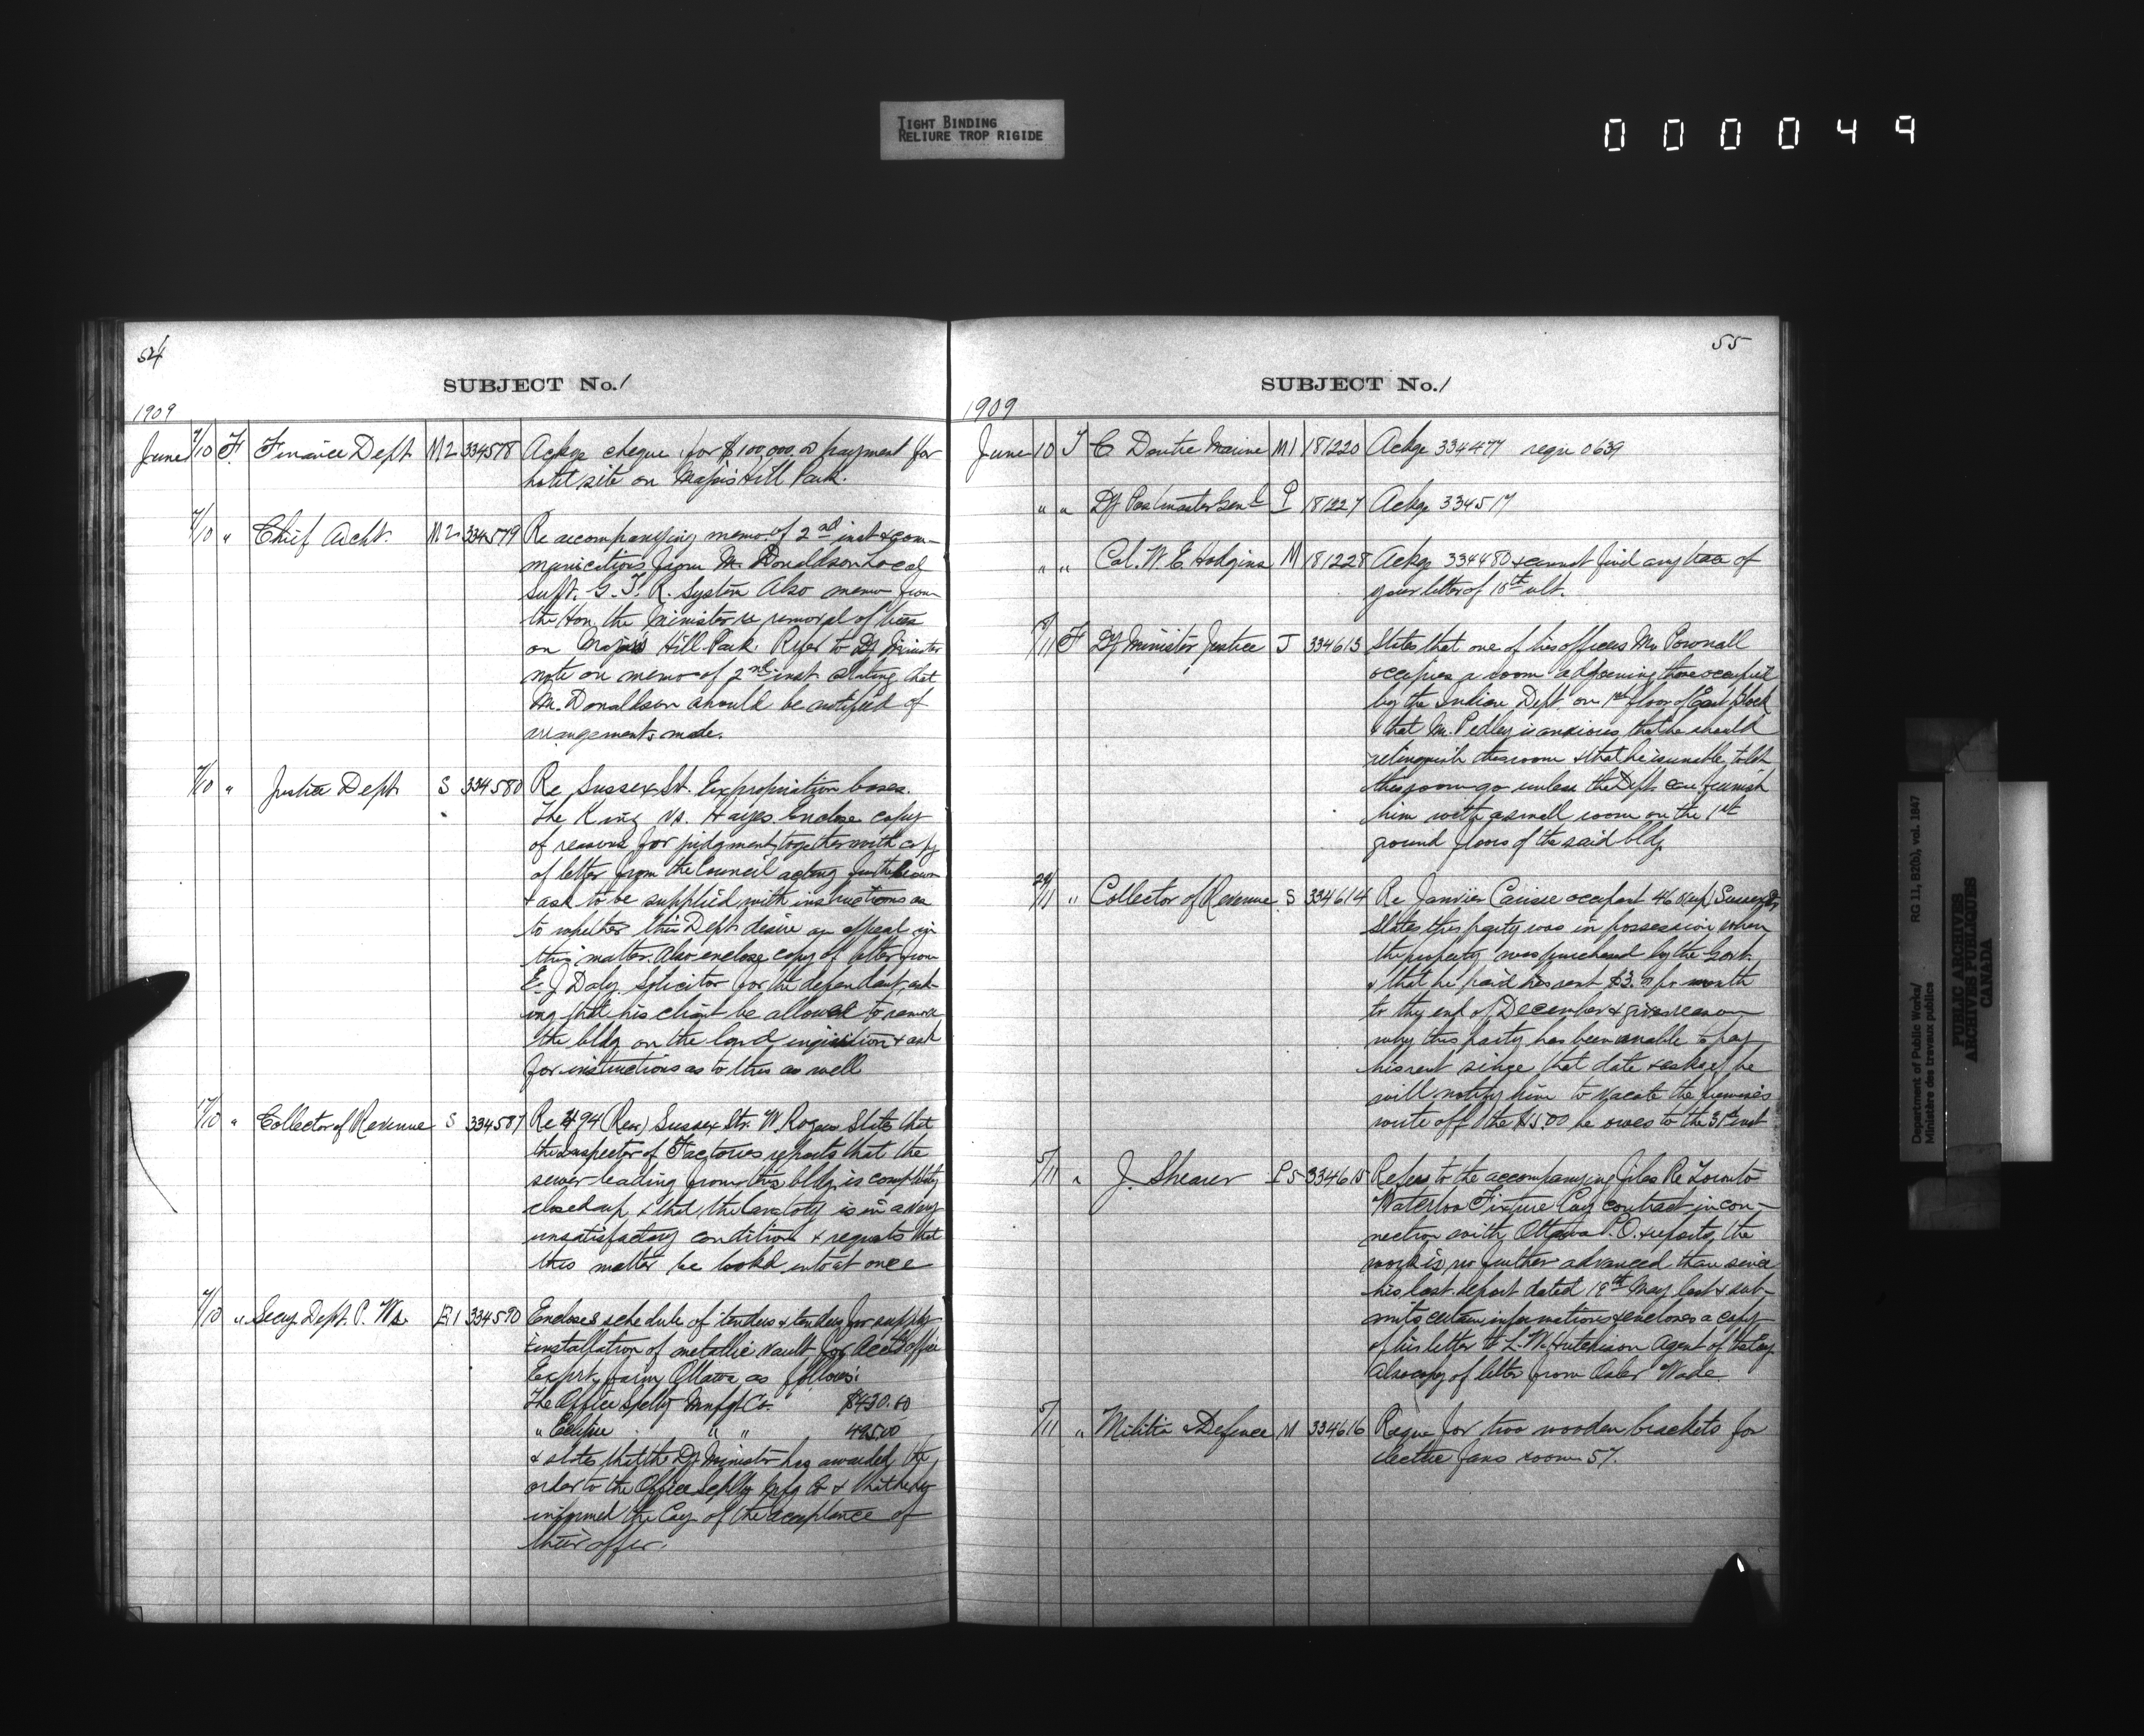 TIGHT BINDING
RELIURE TROP RIGIDE
000049
54
SUBJECT No. 1
1909
June 7/10 F. Finance Dept M2 334578 Ackge cheque for $100,000.00 payment for
hotel site on Majors Hill Park.
7/10 " Chief Archt. M2 334579 Re accompanying memo of 2nd inst & com-
munications from Mr. Donaldson Local
Supt. G. T. R. System Also memo from
the Hon. the Minister re removal of trees
on Majors Hill Park. Refer to Dy Minister
note on memo of 2nd inst stating that
Mr. Donaldson should be notified of
arrangements made.
7/10 " Justice Dept S 334580 Re Sussex St. Expropriation cases.
The King vs. Hayes. Enclose copy
of reasons for judgment together with copy
of letter from the Council acting for the Crown
& ask to be supplied with instructions as
to whether this Dept. desire an appeal in
this matter. Also enclose copy of letter from
E. J Daly. Solicitor for the defendant, ask-
ing that his client be allowed to remove
the bldg on the land in question & ask
for instructions as to this as well
17/10 " Collector of Revenue S 334587 Re 494 (Rear) Sussex Str. W. Rogers States that
the Inspector of Factories reports that the
sewer leading from this bldg. is completely
closed up & that the lavatory is in a very
unsatisfactory condition & requests that
this matter be looked into at once
7/10 " Secy Dept. P. Ws. E.1 334590 Encloses schedule of tenders & tenders for supply
& installation of metallic vault for Acct's office
Exprt. farm Ottawa as follows:
The Office Splty Mnfgt Co. $430.00
" Eclipse " " 495.00
& states that the Dy. Minister has awarded the
order to the Office Splty Mfg Co & that he has
informed the Coy of the acceptance of
their offer.
55
SUBJECT No. 1
1909
June 10 T C Doutre Marine M1 181220 Ackge 334477 requ 0639
" " Dy Postmaster Genl P 181227 Ackge 334517
" " Col. W. E Hodgins M 181228 Ackge 334480 & cannot find any trace of
your letter of 18th ult.
5/11 F Dy Minister Justice J 334613 States that one of his officers Mr. Pownall
occupies a room adjoining those occupied
by the Indian Dept on 1st floor of East Block
& that Mr. Pedley is anxious that he should
relinquish the room & that he is unable to let
this room go unless the Dept. can furnish
him with a small room on the 1st
ground floors of the said bldg.
29/11 " Collector of Revenue S 334614 Re Janvier Carisse occupant 460 (up) Sussex St
States this party was in possession when
the property was purchased by the Govt.
& that he paid his rent $3.00 per month
to the end of December & gives reason
why this party has been unable to pay
his rent since that date & asks if he
will notify him to vacate the premises
write off the $15.00 he owes to the 31st inst
5/11 " J. Shearer P5 334615 Refers to the accompanying files Re Toronto
Waterloo Fixture Coy contract in con-
nection with Ottawa P.O. & reports the
work is no further advanced than since
his last report dated 18th May last & sub-
mits certain informations & encloses a copy
of his letter to L. W. Hutchison Agent of the Coy
Also copy of letter from Osler Wade
5/11 " Militia & Defence M 334616 Requ for two wooden brackets for
electric fans room 57.
Department of Public Works/ RG 11, B2(b), vol. 1847
Ministère des travaux publics
PUBLIC ARCHIVES
ARCHIVES PUBLIQUES
CANADA